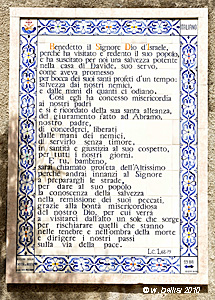 ITALIANO
Benedetto il Signore Dio d'Israele,
perchè ha visitato e redento il suo popolo,
e ha suscitato per noi una salvezza potente
nella casa di Davide, suo servo,
come aveva promesso
per bocca dei suoi santi profeti d'un tempo:
salvezza dai nostri nemici,
e dalle mani di quanti ci odiano.
Così egli ha concesso misericordia
ai nostri padri
e si è ricordato della sua santa alleanza,
del giuramento fatto ad Abramo,
nostro padre,
di concederci, liberati
dalle mani dei nemici,
di servirlo senza timore,
in santità e giustizia al suo cospetto,
per tutti i nostri giorni.
E tu, bambino,
sarai chiamato profeta dell'Altissimo
perchè andrai innanzi al Signore
a preparargli le strade,
per dare al suo popolo
la conoscenza della salvezza
nella remissione dei suoi peccati,
grazie alla bontà misericordiosa
del nostro Dio, per cui verrà
a visitarci dall'alto un sole che sorge
per rischiarare quelli che stanno
nelle tenebre e nell'ombra della morte
e dirigere i nostri passi
sulla via della pace.
Lc. 1,68-79
© w. bellisi 2010